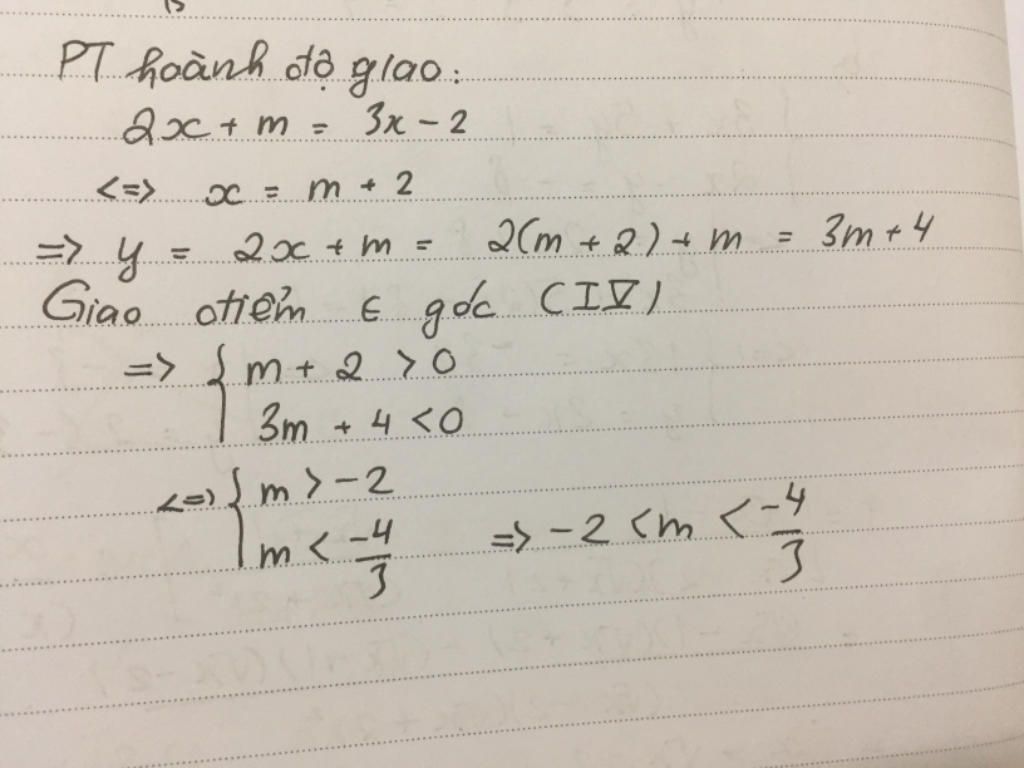 PT hoành độ giao:
2x + m = 3x - 2
<=> x = m + 2
=> y = 2x + m = 2(m + 2) + m = 3m + 4
Giao điểm ∈ góc (IV)
=> { m + 2 > 0
3m + 4 < 0
<=> { m > -2
m < -4/3 => -2 < m < -4/3